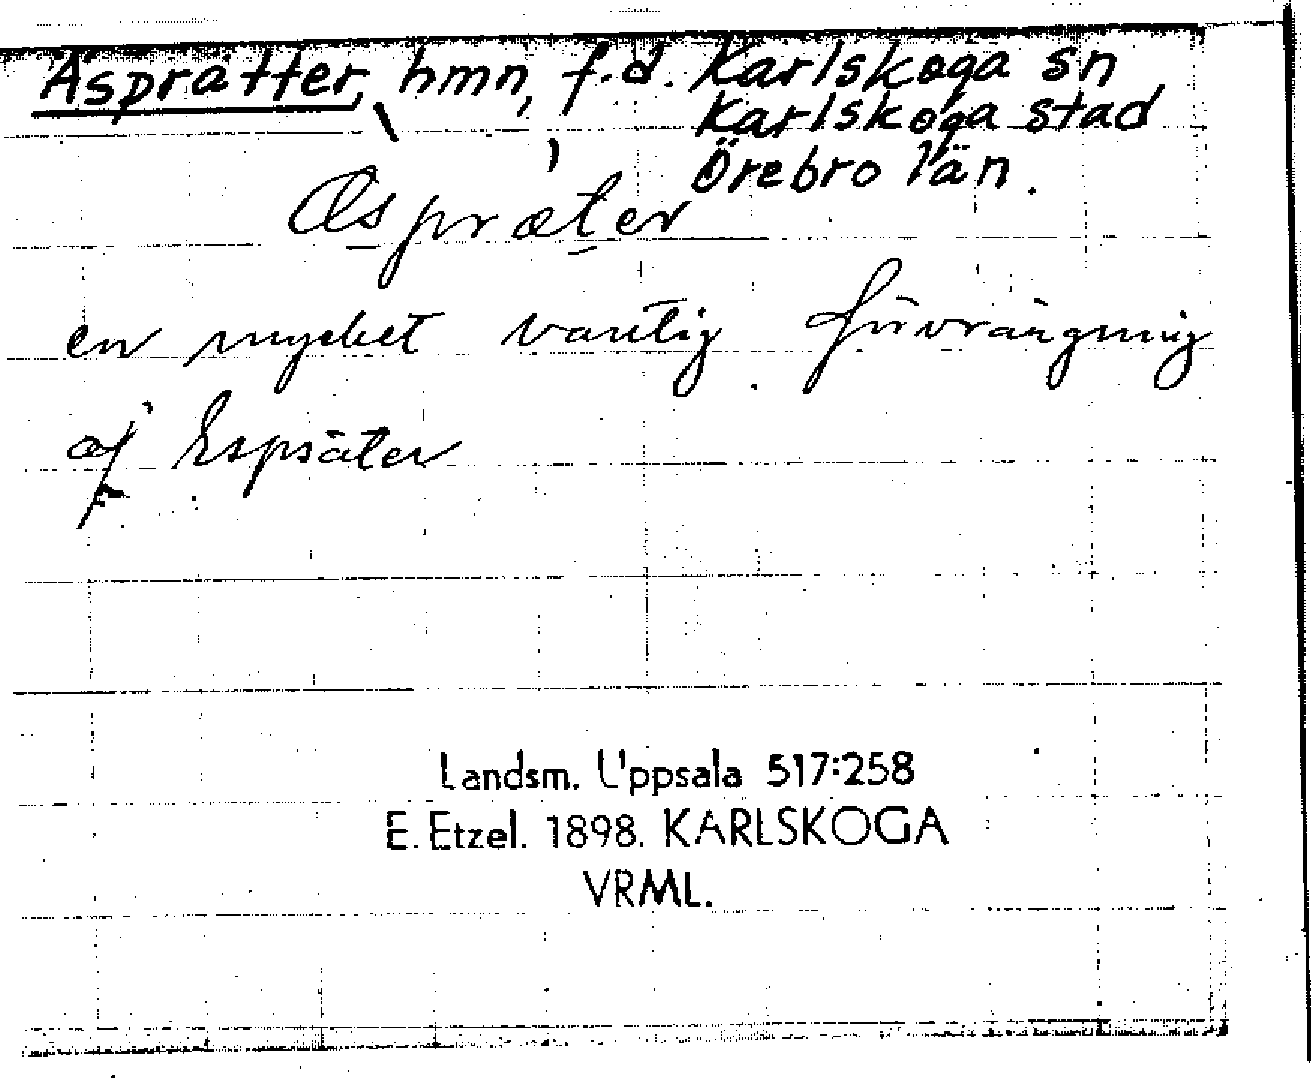 Äspratter, hmn, f.d. Karlskoga sn
Karlskoga stad
Örebro län.
Æspræter
en mycket vanlig förvrängning
af Espsäter
Landsm. Uppsala 517:258
E. Etzel. 1898. KARLSKOGA
VRML.